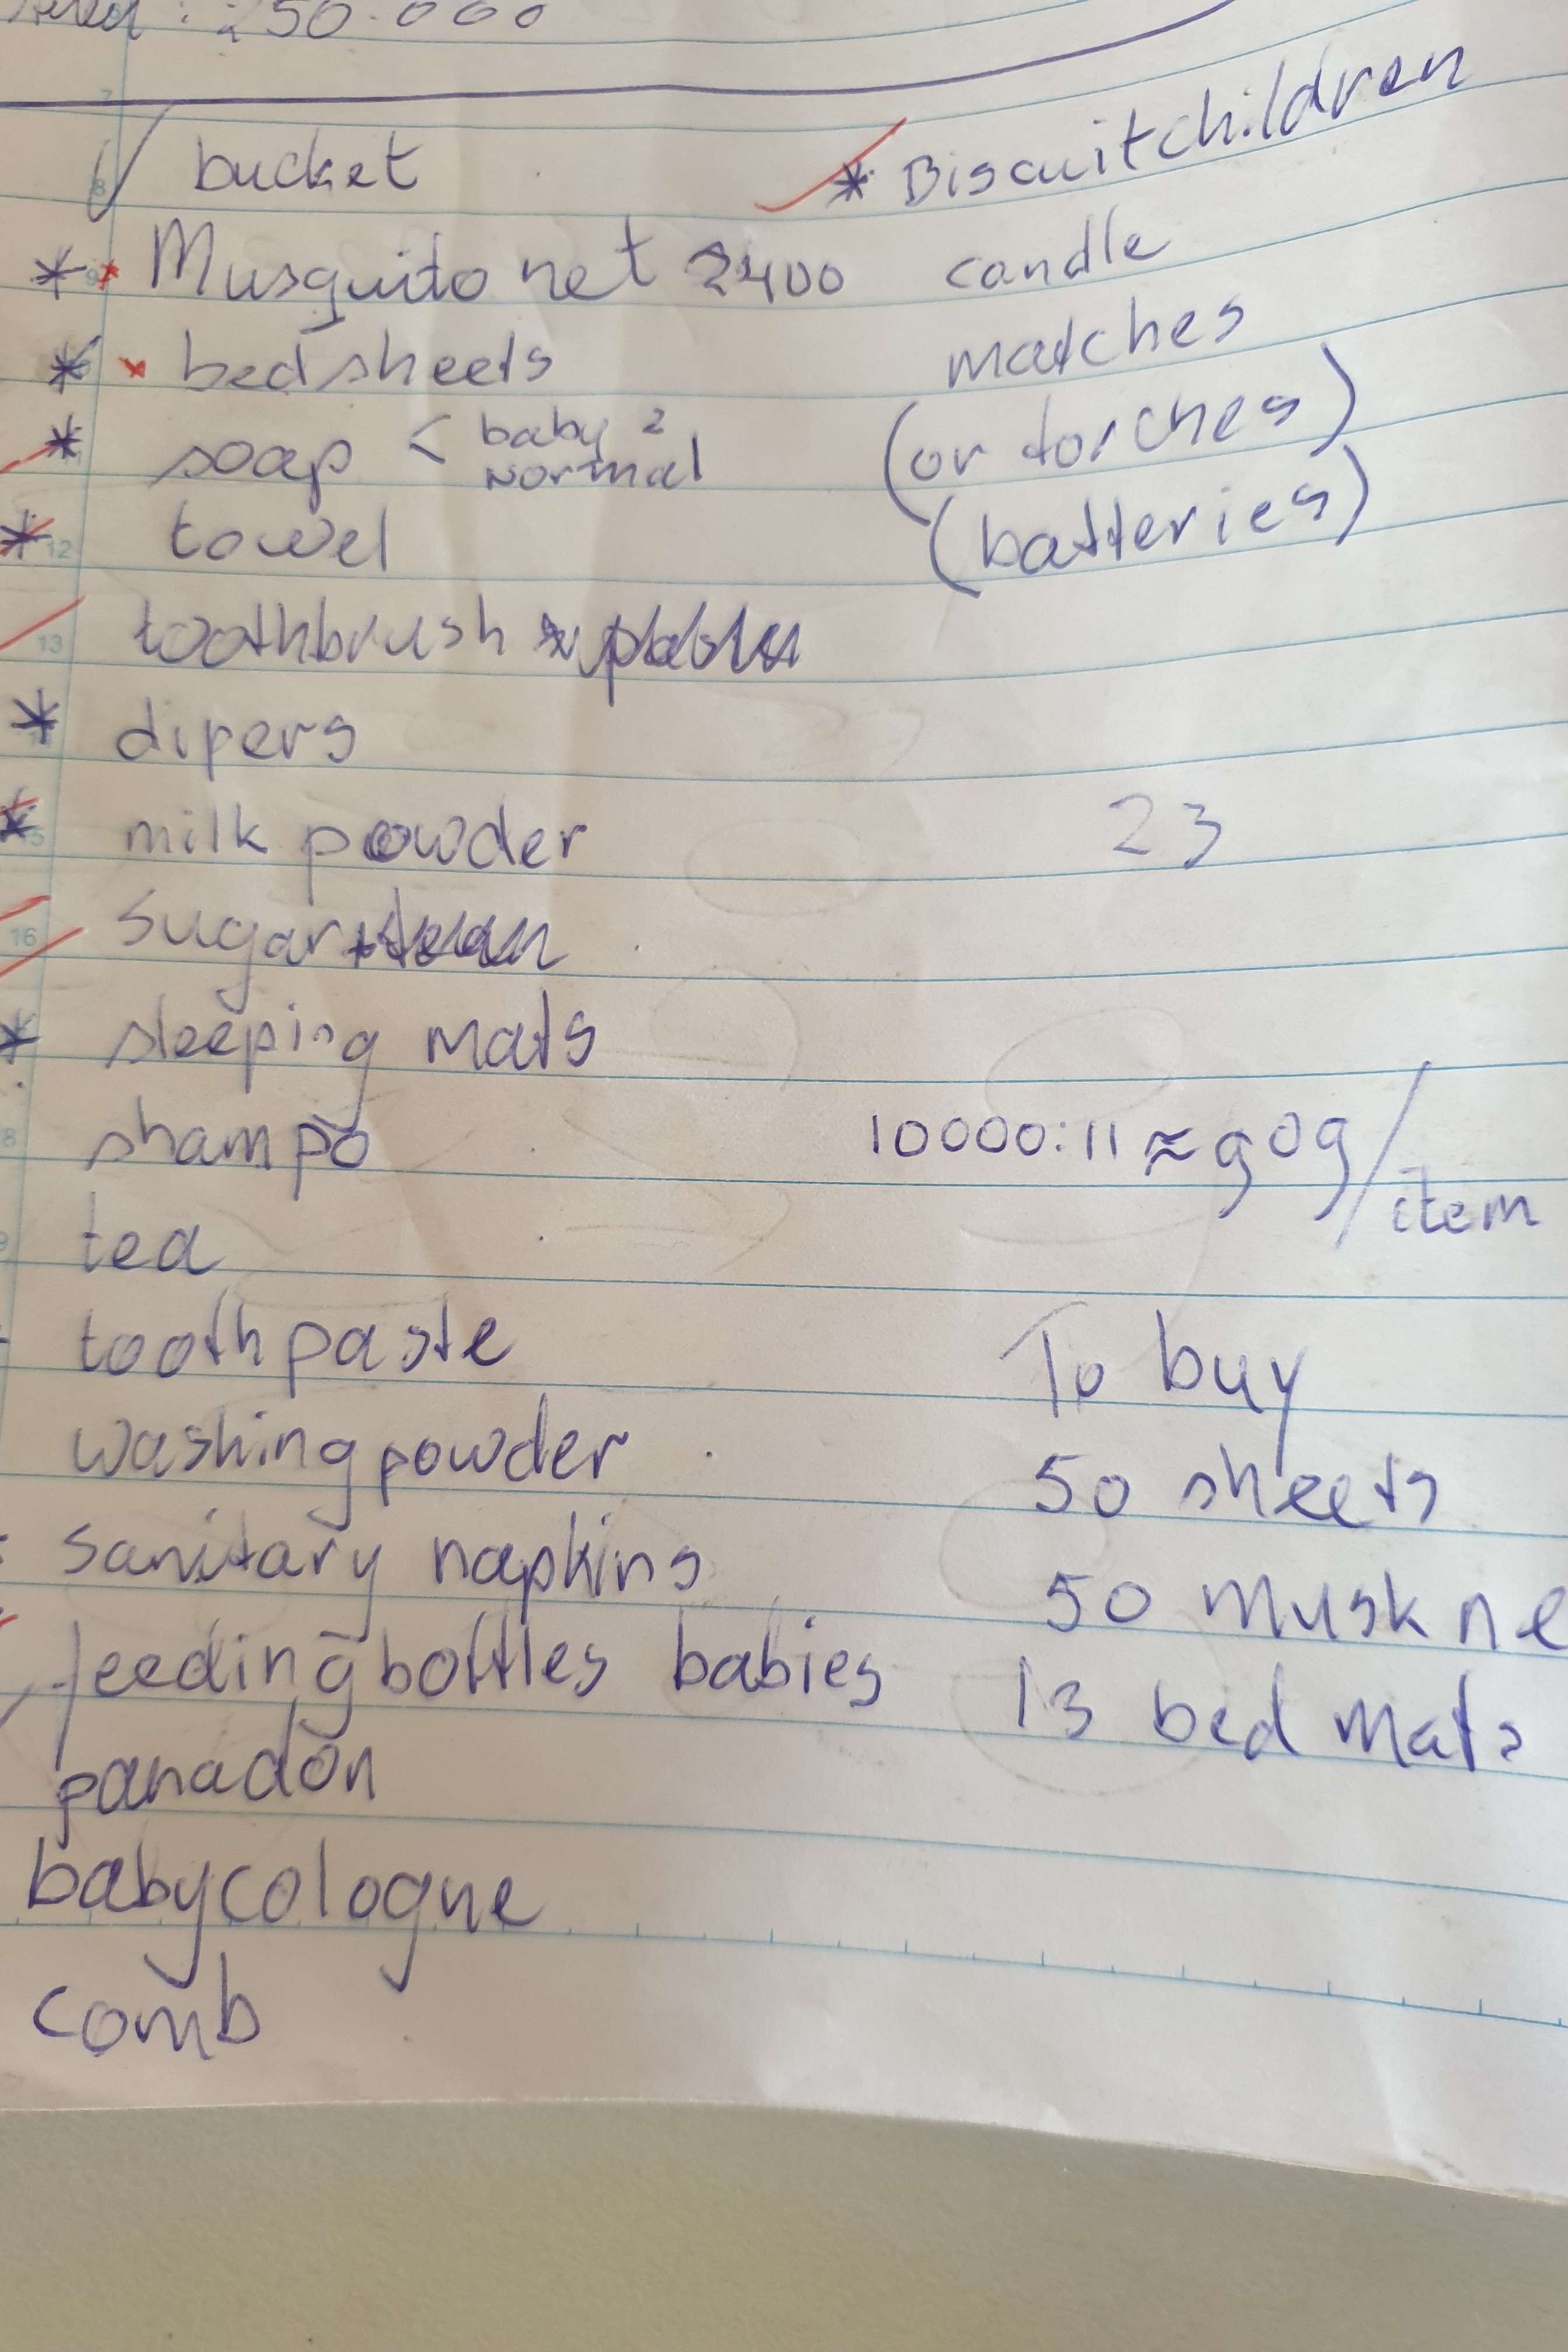 50.000
bucket
* Musquito net 2400
* bedsheets
* soap < baby 2
normal
* towel
toothbrush
* dipers
* milk powder
sugar
* sleeping mats
shampo
tea
toothpaste
washingpowder
sanitary napkins
feedingbottles babies
panadon
babycologne
comb
* Biscuitchildren
candle
matches
(or torches)
(batteries)
23
10000:11 ≈ 909/
item
To buy
50 sheets
50 Musk ne
13 bed mats